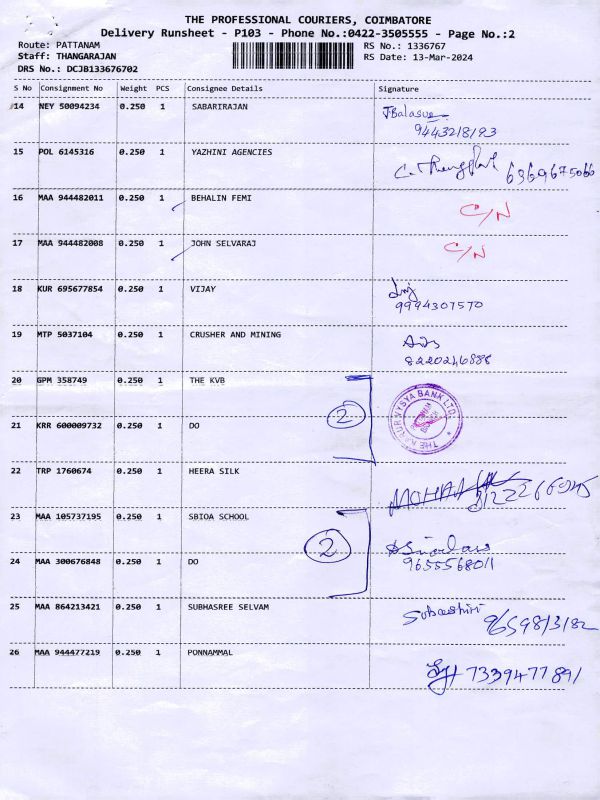 THE PROFESSIONAL COURIERS, COIMBATORE
Delivery Runsheet - P103 - Phone No.:0422-3505555 - Page No.:2
Route: PATTANAM RS No.: 1336767
Staff: THANGARAJAN RS Date: 13-Mar-2024
DRS No.: DCJB133676702
S No Consignment No Weight PCS Consignee Details Signature
14 NEY 50094234 0.250 1 SABARIRAJAN
9443218193
15 POL 6145316 0.250 1 YAZHINI AGENCIES 6369675066
16 MAA 944482011 0.250 1 BEHALIN FEMI C/N
17 MAA 944482008 0.250 1 JOHN SELVARAJ C/N
18 KUR 695677854 0.250 1 VIJAY
9994307570
19 MTP 5037104 0.250 1 CRUSHER AND MINING
8220246888
20 GPM 358749 0.250 1 THE KVB
2 THE KARUR VYSYA BANK LTD.
21 KRR 600009732 0.250 1 DO
22 TRP 1760674 0.250 1 HEERA SILK
23 MAA 105737195 0.250 1 SBIOA SCHOOL
2
24 MAA 300676848 0.250 1 DO
9655568011
25 MAA 864213421 0.250 1 SUBHASREE SELVAM 9659813182
26 MAA 944477219 0.250 1 PONNAMMAL 7339477891